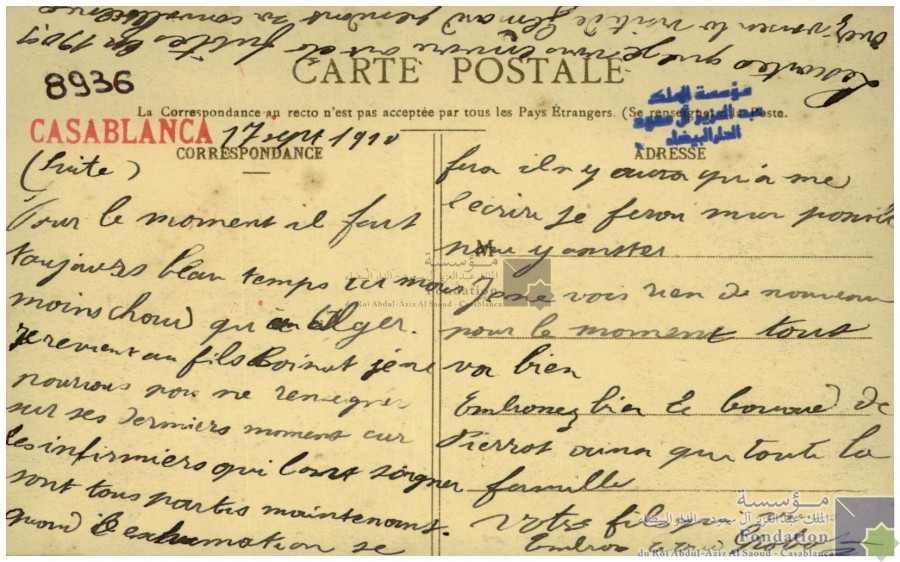 Les cartes que je vous envoie ont été faites en 1909
avez la visite de pendant sa convalescence
8936
CARTE POSTALE
La Correspondance au recto n'est pas acceptée par tous les Pays Étrangers. (Se renseigner à la Poste.
مؤسسة الملك
عبد العزيز آل سعود
الدار البيضاء
CASABLANCA 17 sept 1910
CORRESPONDANCE
(Suite)
Pour le moment il fait
toujours beau temps ici mais
moins chaud qu'à Alger.
je revient au fils Boinot je ne
pourrais pas me renseigner
sur ses derniers moment car
les infirmiers qui l'ont soigner
sont tous partis maintenant.
quand l'exhumation se
ADRESSE
fera il n'y aura qu'à me
l'écrire je ferai mon possible
pour y assister
M
Je ne vois rien de nouveau
pour le moment tout
va bien
Embrassez bien le de
Pierrot ainsi que toute la
famille
Votre fils
مؤسسة
الملك عبد العزيز آل سعود - الدار البيضاء
Fondation
du Roi Abdul-Aziz Al Saoud - Casablanca
مؤسسة
الملك عبد العزيز آل سعود - الدار البيضاء
Fondation
du Roi Abdul-Aziz Al Saoud - Casablanca